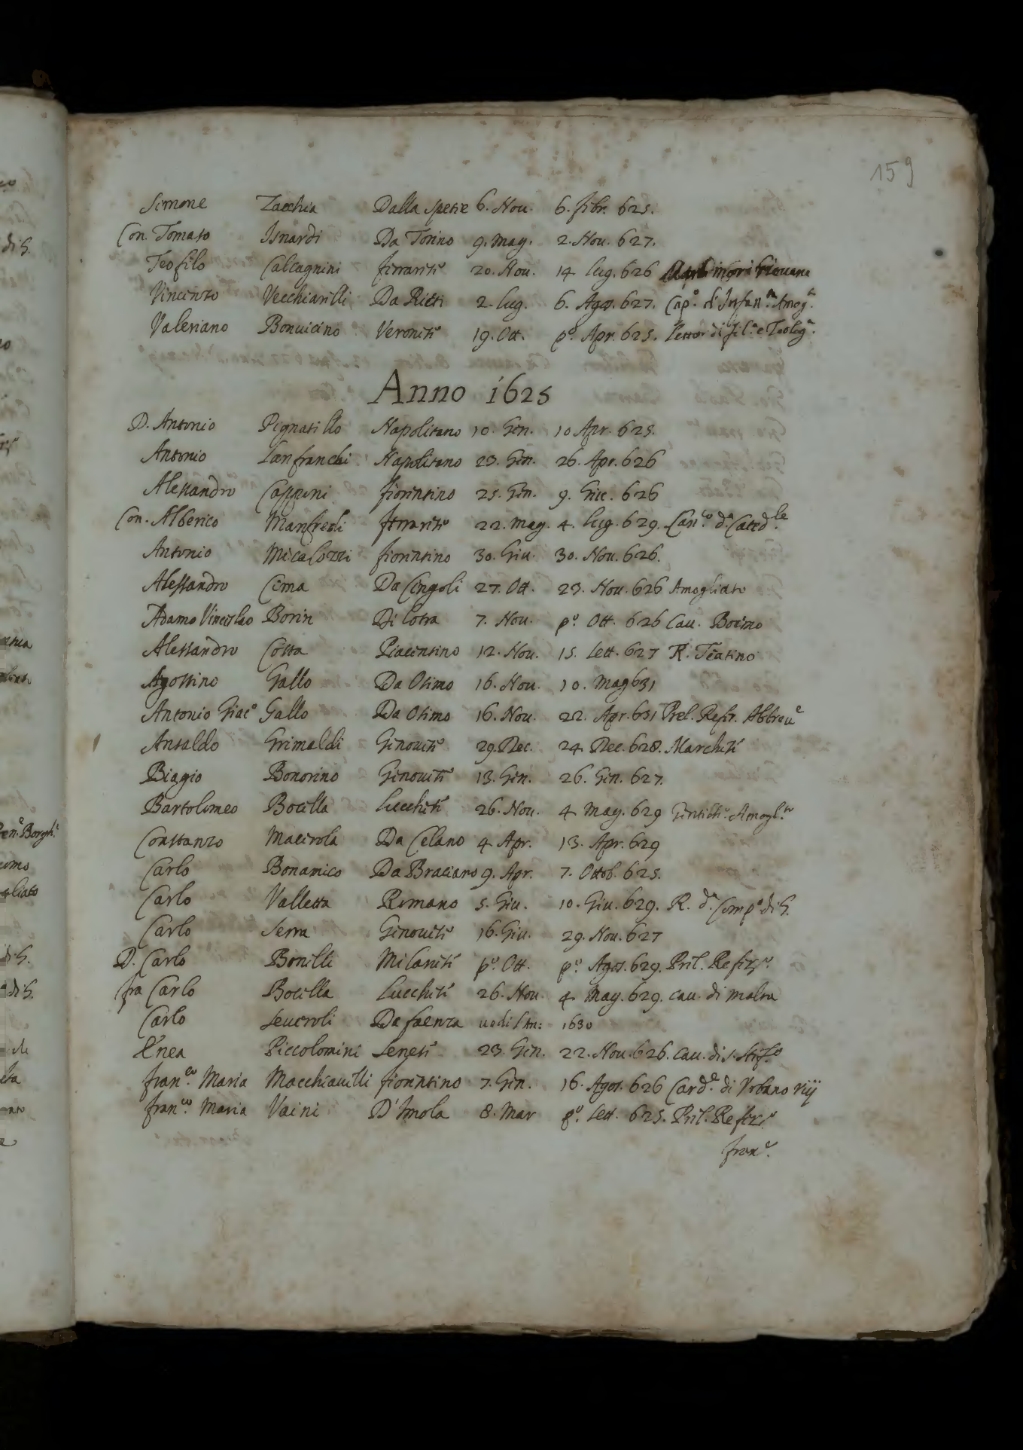 159
Simone Zacchia Dalla Spetie 6. Nou. 6. febr. 625.
Con. Tomaso Isnardi Da Torino 9. Mag. 2. Nou. 627.
Teofilo Calcagnini ferrarese 20. Nou. 14 lug. 626
Vincenzo Vecchiarelli Da Rieti 2. lug. 6. Ago. 627. Cap.º di Infan.ria Amog.to
Valeriano Bonuicino Veronese 19. Ott. p.º Apr. 625. Lettor di fil.a e Teolog.a
Anno 1625
D. Antonio Pignatello Napolitano 10. Gen. 10 Apr. 625.
Antonio Lanfranchi Napolitano 23. Gen. 26. Apr. 626
Alessandro Capponi fiorentino 25. Gen. 9. Giu. 626
Con. Alberico Manfredi ferrarese 22. Mag. 4. lug. 629. Can.co d.a Catted.le
Antonio Micalozzi fiorentino 30. Giu. 30. Nou. 626.
Alessandro Cima Da Cingoli 27. Ott. 23. Nou. 626 Amogliato
Adamo Vinceslao Borin Di 7. Nou. p.º Ott. 626 Cau. Boemo
Alessandro Costa Piacentino 12. Nou. 15. Sett. 627 R. Teatino
Agostino Gallo Da Osimo 16. Nou. 10. Mag 631
Antonio Giac.º Gallo Da Osimo 16. Nou. 22. Apr. 631 Prel. Refer. Abbreu.e
Ansaldo Grimaldi Genouese 29. Dec. 24. Dec. 628. Marchese
Biagio Bonorino Genouese 13. Gen. 26. Gen. 627.
Bartolomeo Bocilla Lucchese 26. Nou. 4. Mag. 629 Amogl.to
Constanzo Macirola Da Celano 4. Apr. 13. Apr. 629
Carlo Bonamico Da Braciano 9. Apr. 7. Ottob. 625.
Carlo Valletta Romano 5. Giu. 10. Giu. 629. R. d.a Comp.a di G.
Carlo Serra Genouese 16. Giu. 29. Nou. 627
D. Carlo Bonelli Milanese p.º Ott. p.º Agos. 629. Prel. Refer.
fra Carlo Bocilla Lucchese 26. Nou. 4. Mag. 629. Cau. di Malta
Carlo Seueroli Da faenza 1630
Enea Piccolomini Senese 23. Gen. 22. Nou. 626. Cau. di S. Stef.º
fran.co Maria Macchiauelli fiorentino 7. Gen. 16. Agos. 626 Card.e di Vrbano viij
fran.co Maria Vaini D'Imola 8. Mar p.º Sett. 625. Prel. Refer.
fran.co